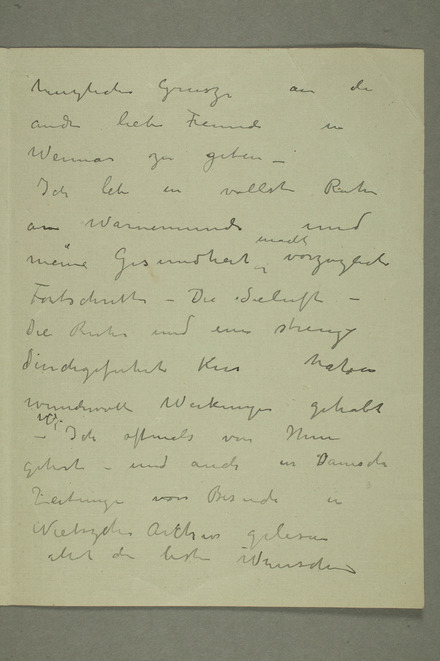 herzliche Grüsze an die
andre liebe Freunde in
Weimar zu geben –
Ich lebe in vollste Ruhe
an Warnemunde und
meine Gesundheit macht vorzugliche
Fortschritte – Die Seeluft –
die Ruhe und eine strenge
durchgefuhrte Kur haben
wundervolle Wirkungen gehabt
– Ich oftmals von Ihnen
gehort – und auch in Danische
Zeitunge von Besuche in
Nietzsche Archiv gelesen
die beste Wunsche